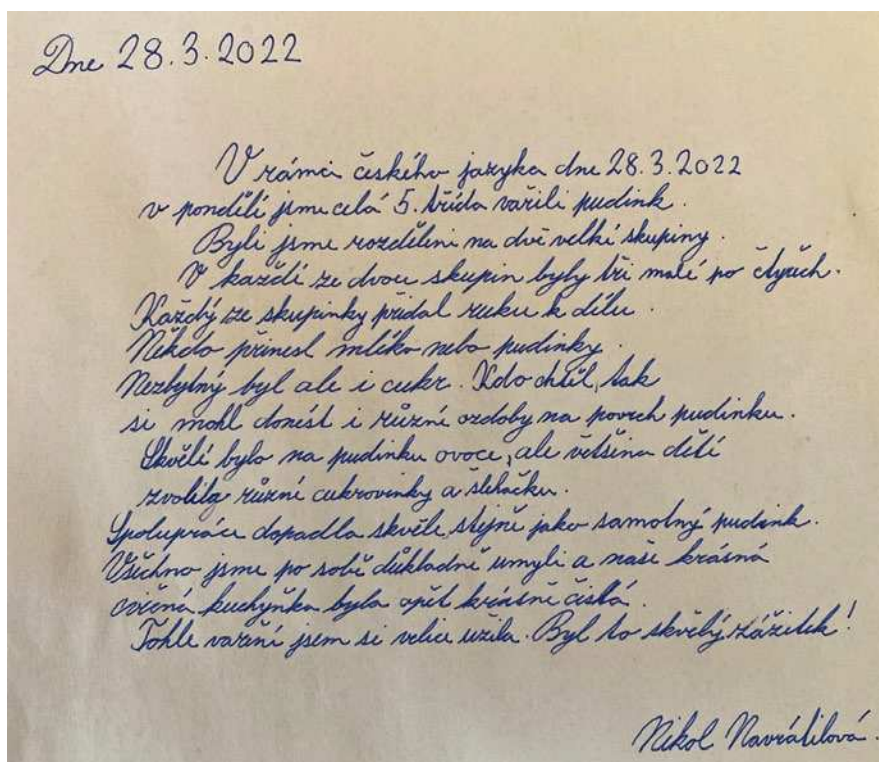 Dne 28.3.2022
V rámci českého jazyka dne 28.3.2022
v pondělí jsme celá 5. třída vařili pudink.
Byli jsme rozděleni na dvě velké skupiny.
V každé ze dvou skupin byly tři malé po čtyřech.
Každý ze skupinky přidal ruku k dílu.
Někdo přinesl mléko nebo pudinky.
Nezbytný byl ale i cukr. Kdo chtěl, tak
si mohl donést i různé ozdoby na povrch pudinku.
Skvělé bylo na pudinku ovoce, ale většina dětí
zvolila různé cukrovinky a šlehačku.
Spolupráce dopadla skvěle, stejně jako samotný pudink.
Všechno jsme po sobě důkladně umyli a naše krásná
cvičná kuchyňka byla opět krásně čistá.
Tohle vaření jsem si velice užila. Byl to skvělý zážitek!
Nikol Navrátilová.